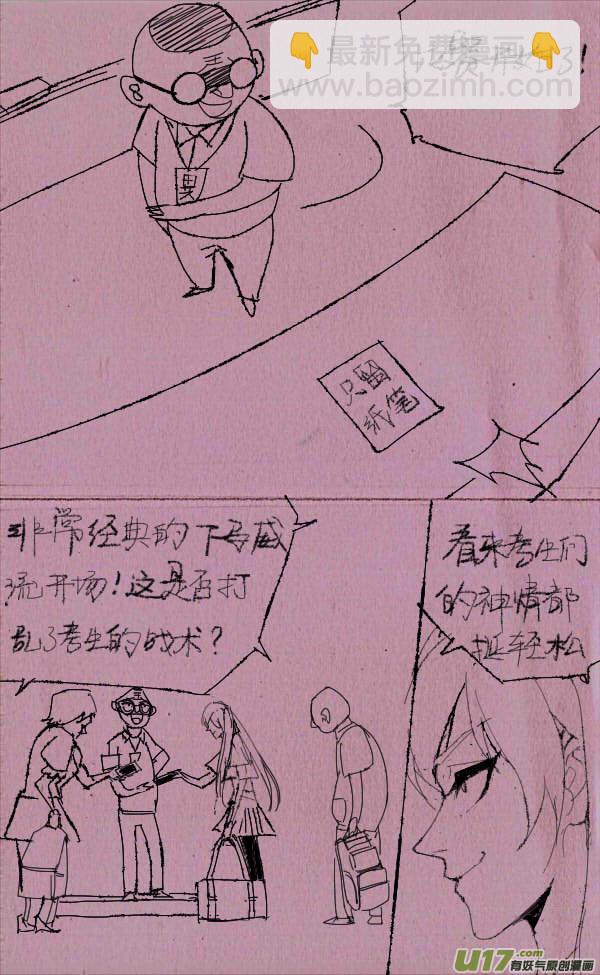 最新免费漫画
www.baozimh.com
王
只留
纸笔
非常经典的下马威
流开场！这是否打
乱了考生的战术？
看来考生们
的神情都
挺轻松
U17.com
有妖气原创漫画